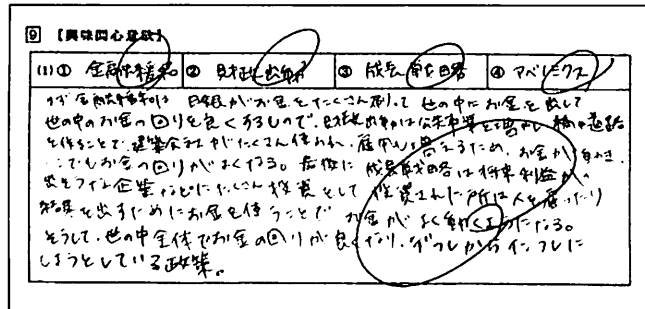 9 【興味関心意欲】
(1)① 金融緩和 ② 財政出動 ③ 成長戦略 ④ アベノミクス
まず金融緩和は 日銀がお金をたくさん刷って 世の中にお金を出して
世の中のお金の回りを良くするもので、財政出動は公共事業を増やし 橋や道路
を作ることで、建築会社がたくさん使われ、雇用も増えるため、お金が動き、
ここでもお金の回りがよくなる。最後に 成長戦略は将来利益が
出そうな企業などにたくさん投資をして 投資された所は人を雇ったり
結果を出すためにお金を使うことで お金がよく動くようになる。
そうして、世の中全体でお金の回りが良くなり、デフレからインフレに
しようとしている政策。